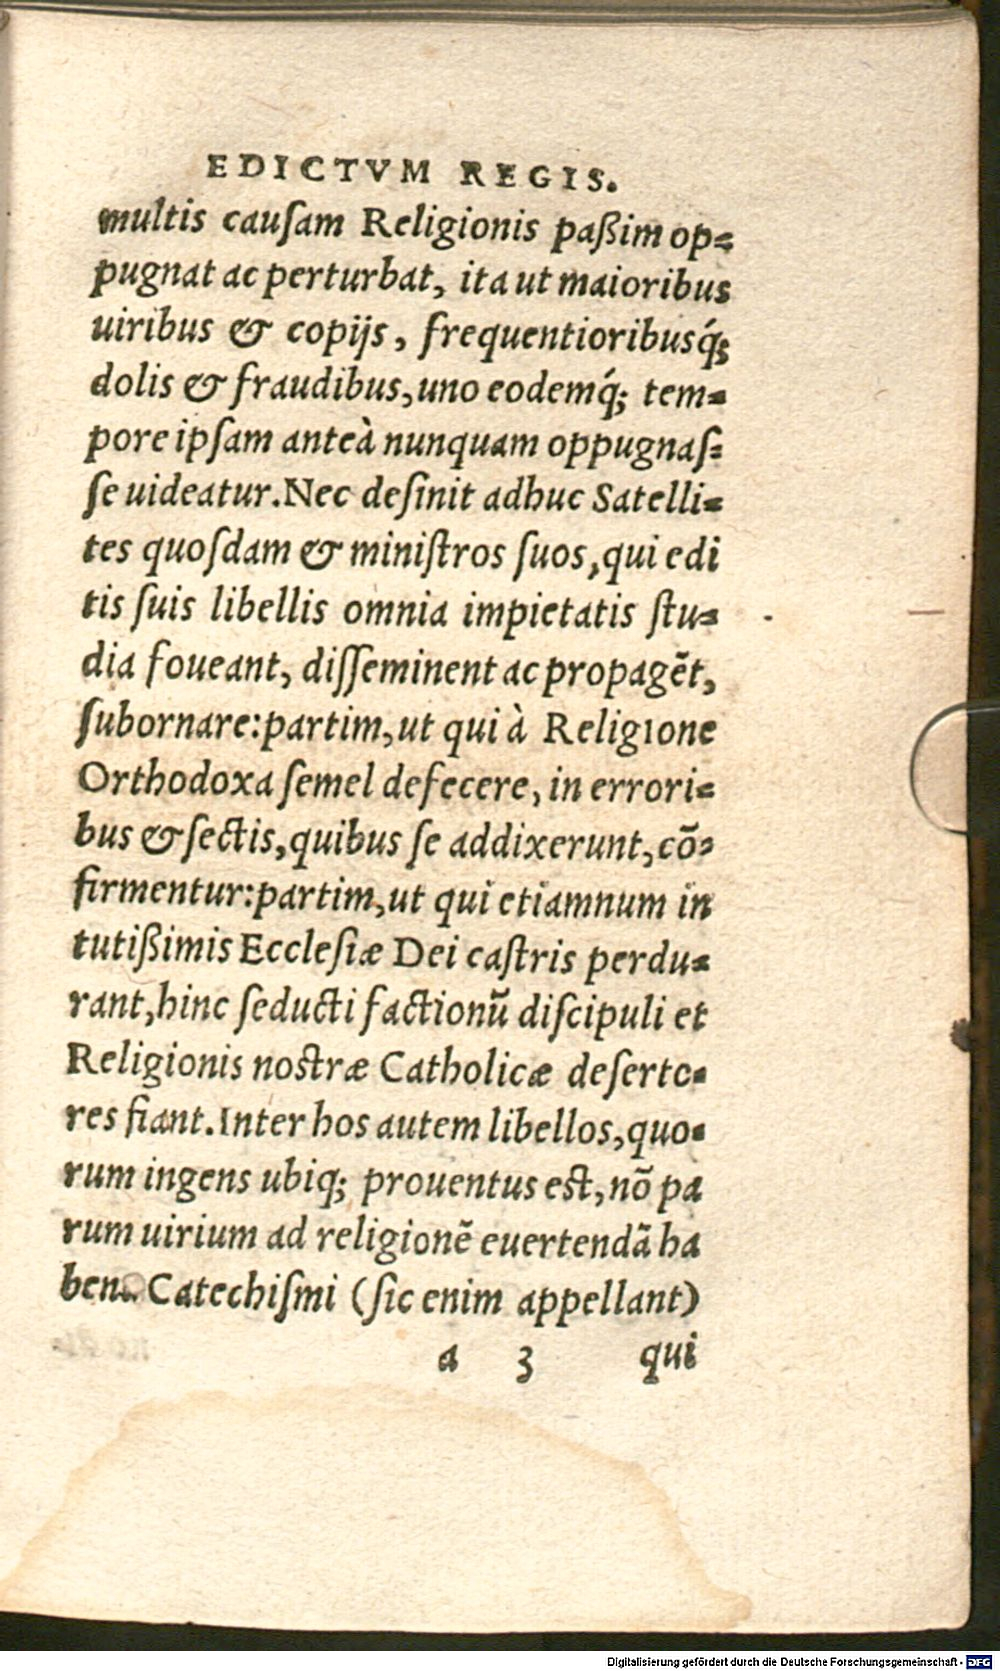 EDICTVM REGIS.
multis cauſam Religionis paßim op-
pugnat ac perturbat, ita ut maioribus
uiribus & copijs, frequentioribusq́;
dolis & fraudibus, uno eodemq́; tem-
pore ipſam anteà nunquam oppugnaſ-
ſe uideatur. Nec deſinit adhuc Satelli-
tes quoſdam & miniſtros ſuos, qui edi
tis ſuis libellis omnia impietatis ſtu-
dia foueant, diſſeminent ac propagẽt,
ſubornare: partim, ut qui à Religione
Orthodoxa ſemel defecere, in errori-
bus & ſectis, quibus ſe addixerunt, cõ-
firmentur: partim, ut qui etiamnum in
tutißimis Eccleſiæ Dei caſtris perdu-
rant, hinc ſeducti factionũ diſcipuli et
Religionis nostræ Catholicæ deſerto-
res fiant. Inter hos autem libellos, quo-
rum ingens ubiq; prouentus est, nõ pa
rum uirium ad religionẽ euertendã ha
ben. Catechiſmi (ſic enim appellant)
a 3 qui
Digitalisierung gefördert durch die Deutsche Forschungsgemeinschaft - DFG